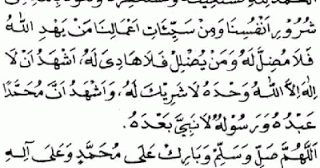 شُرُوْرِ اَنْفُسِنَا وَمِنْ سَيِّئَاتِ اَعْمَالِنَا مَنْ يَهْدِ اللّٰهُ
فَلَا مُضِلَّ لَهُ وَمَنْ يُضْلِلْ فَلَا هَادِيَ لَهُ، اَشْهَدُ اَنْ لَا
اِلٰهَ اِلَّا اللّٰهُ وَحْدَهُ لَا شَرِيْكَ لَهُ، وَاَشْهَدُ اَنَّ مُحَمَّدًا
عَبْدُهُ وَرَسُوْلُهُ لَا نَبِيَّ بَعْدَهُ.
اَللّٰهُمَّ صَلِّ وَسَلِّمْ وَبَارِكْ عَلٰى مُحَمَّدٍ وَعَلٰى آلِهِ